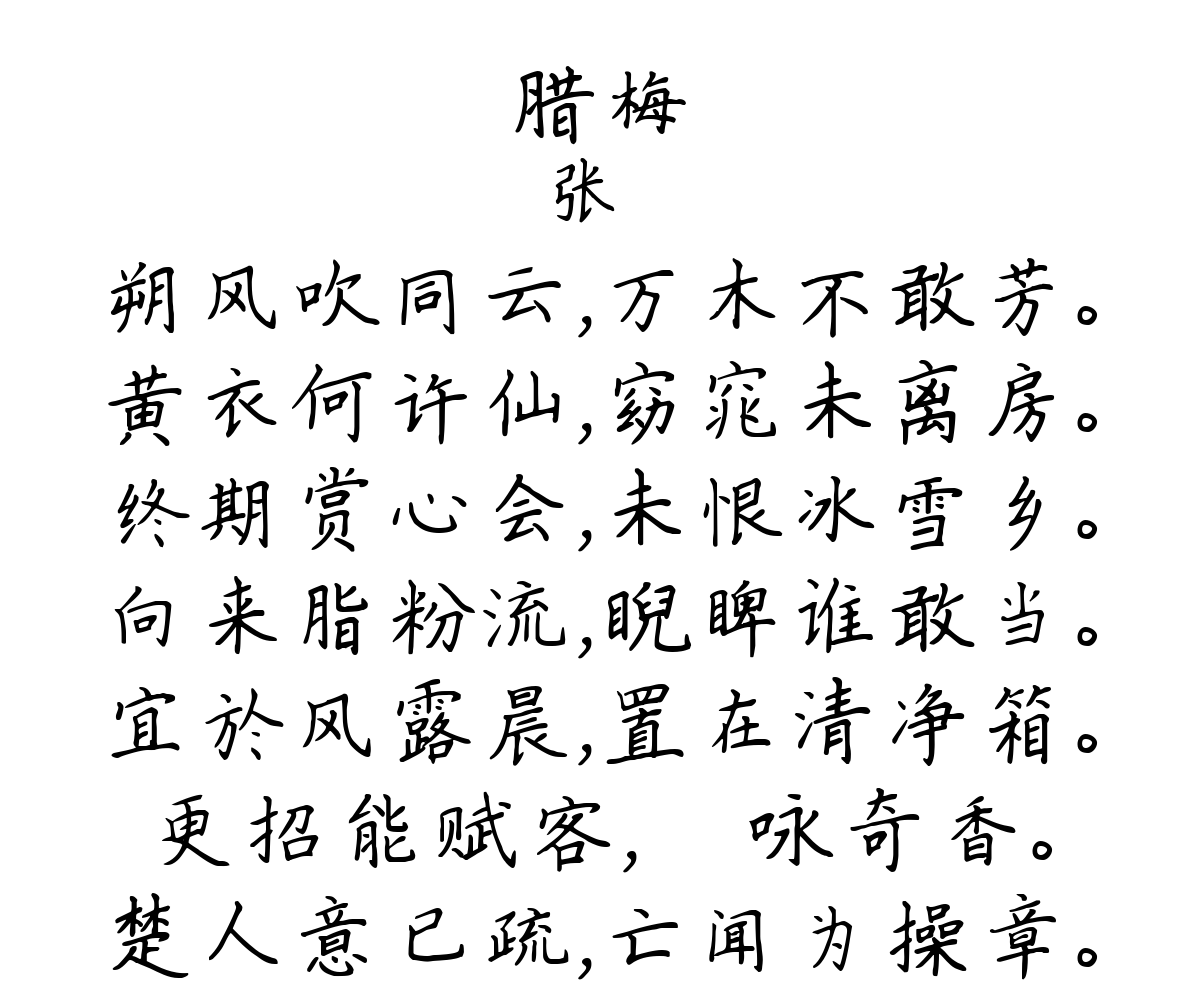 腊梅
张
朔风吹同云,万木不敢芳。
黄衣何许仙,窈窕未离房。
终期赏心会,未恨冰雪乡。
向来脂粉流,睨睥谁敢当。
宜於风露晨,置在清净箱。
更招能赋客, 咏奇香。
楚人意已疏,亡闻为操章。